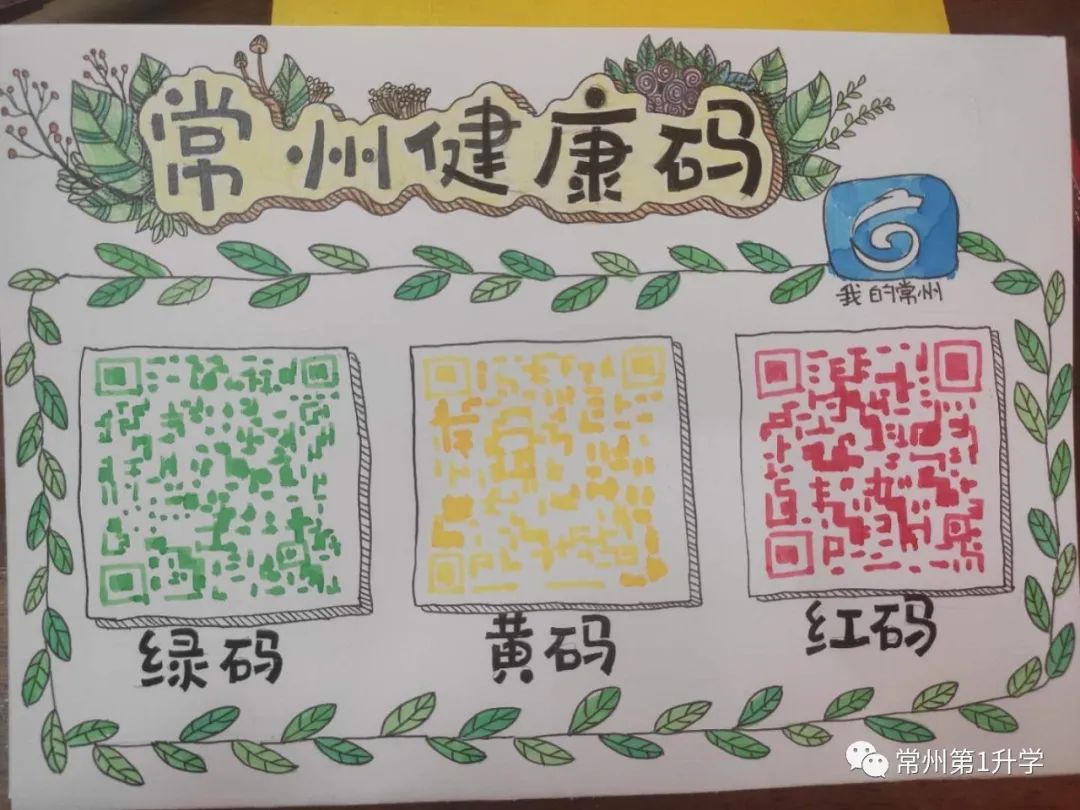 常州健康码
我的常州
绿码
黄码
红码
常州第1升学